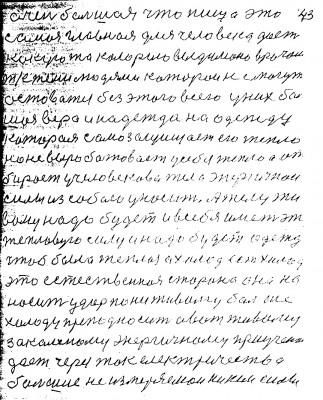 очень большая что пища это 43
самая главная для человека дает
какую то калорию выдумано врачом
этими людями которои не могут
остоватся без этого всего у них бо
шая вера и надежда на одежду
которая само защищает его тепло
но не выработовает у себя тепло а от
бирает у человекова тела энергичной
силы из собою уносит. А телу жи
вому надо будет и в себя иметь эт
тепловую силу и надо будет одежд
чтоб была теплоя а холод есть холод
это естественная сторона она на
носит удар по ни живому бал оне
холод преподносит а вот живому
закалиному энергичному приучен
дает через ток електричества
больше не измеряемой никим силы